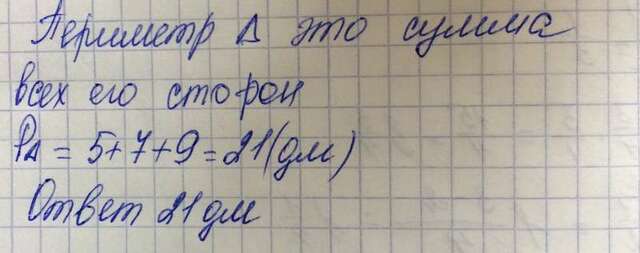 Периметр Δ это сумма
всех его сторон
PΔ = 5+7+9=21(дм)
Ответ 21 дм